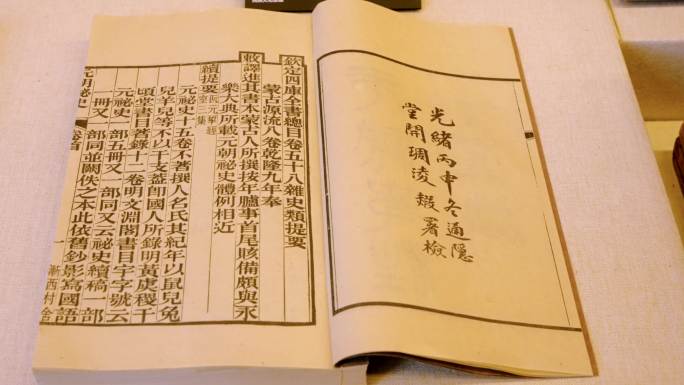 光緒丙申冬通隱
堂開琱淩霞署檢
欽定四庫全書總目卷五十八雜史類提要
蒙古源流八卷乾隆九年奉
敕譯進其書本蒙古人所撰按年臚事首尾賅備頗與永
樂大典所載元朝祕史體例相近
續提要 阮元揅經室三集
元祕史十五卷不著撰人名氏其紀年以鼠兒兔
兒羊兒等不以干支蓋即國人所錄明黃虞稷千
頃堂書目著錄十一卷明文淵閣書目宇字號云
元祕史一部五冊又一部同又云祕史續稿一部
一冊又一部同並闕佚之本此依舊鈔影寫國語
元朝祕史 卷首 一 漸西村舍